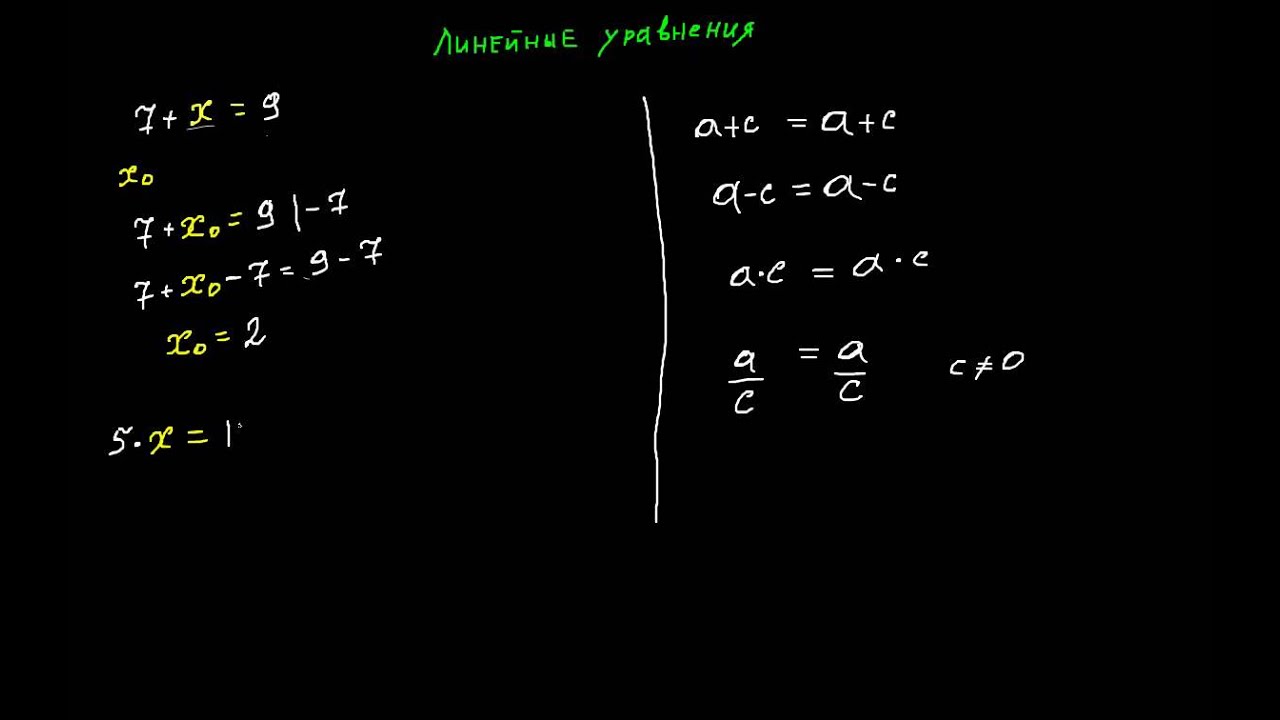 Линейные уравнения
7 + x = 9
x₀
7 + x₀ = 9 | - 7
7 + x₀ - 7 = 9 - 7
x₀ = 2
5 · x = 1
a + c = a + c
a - c = a - c
a · c = a · c
a/c = a/c c ≠ 0